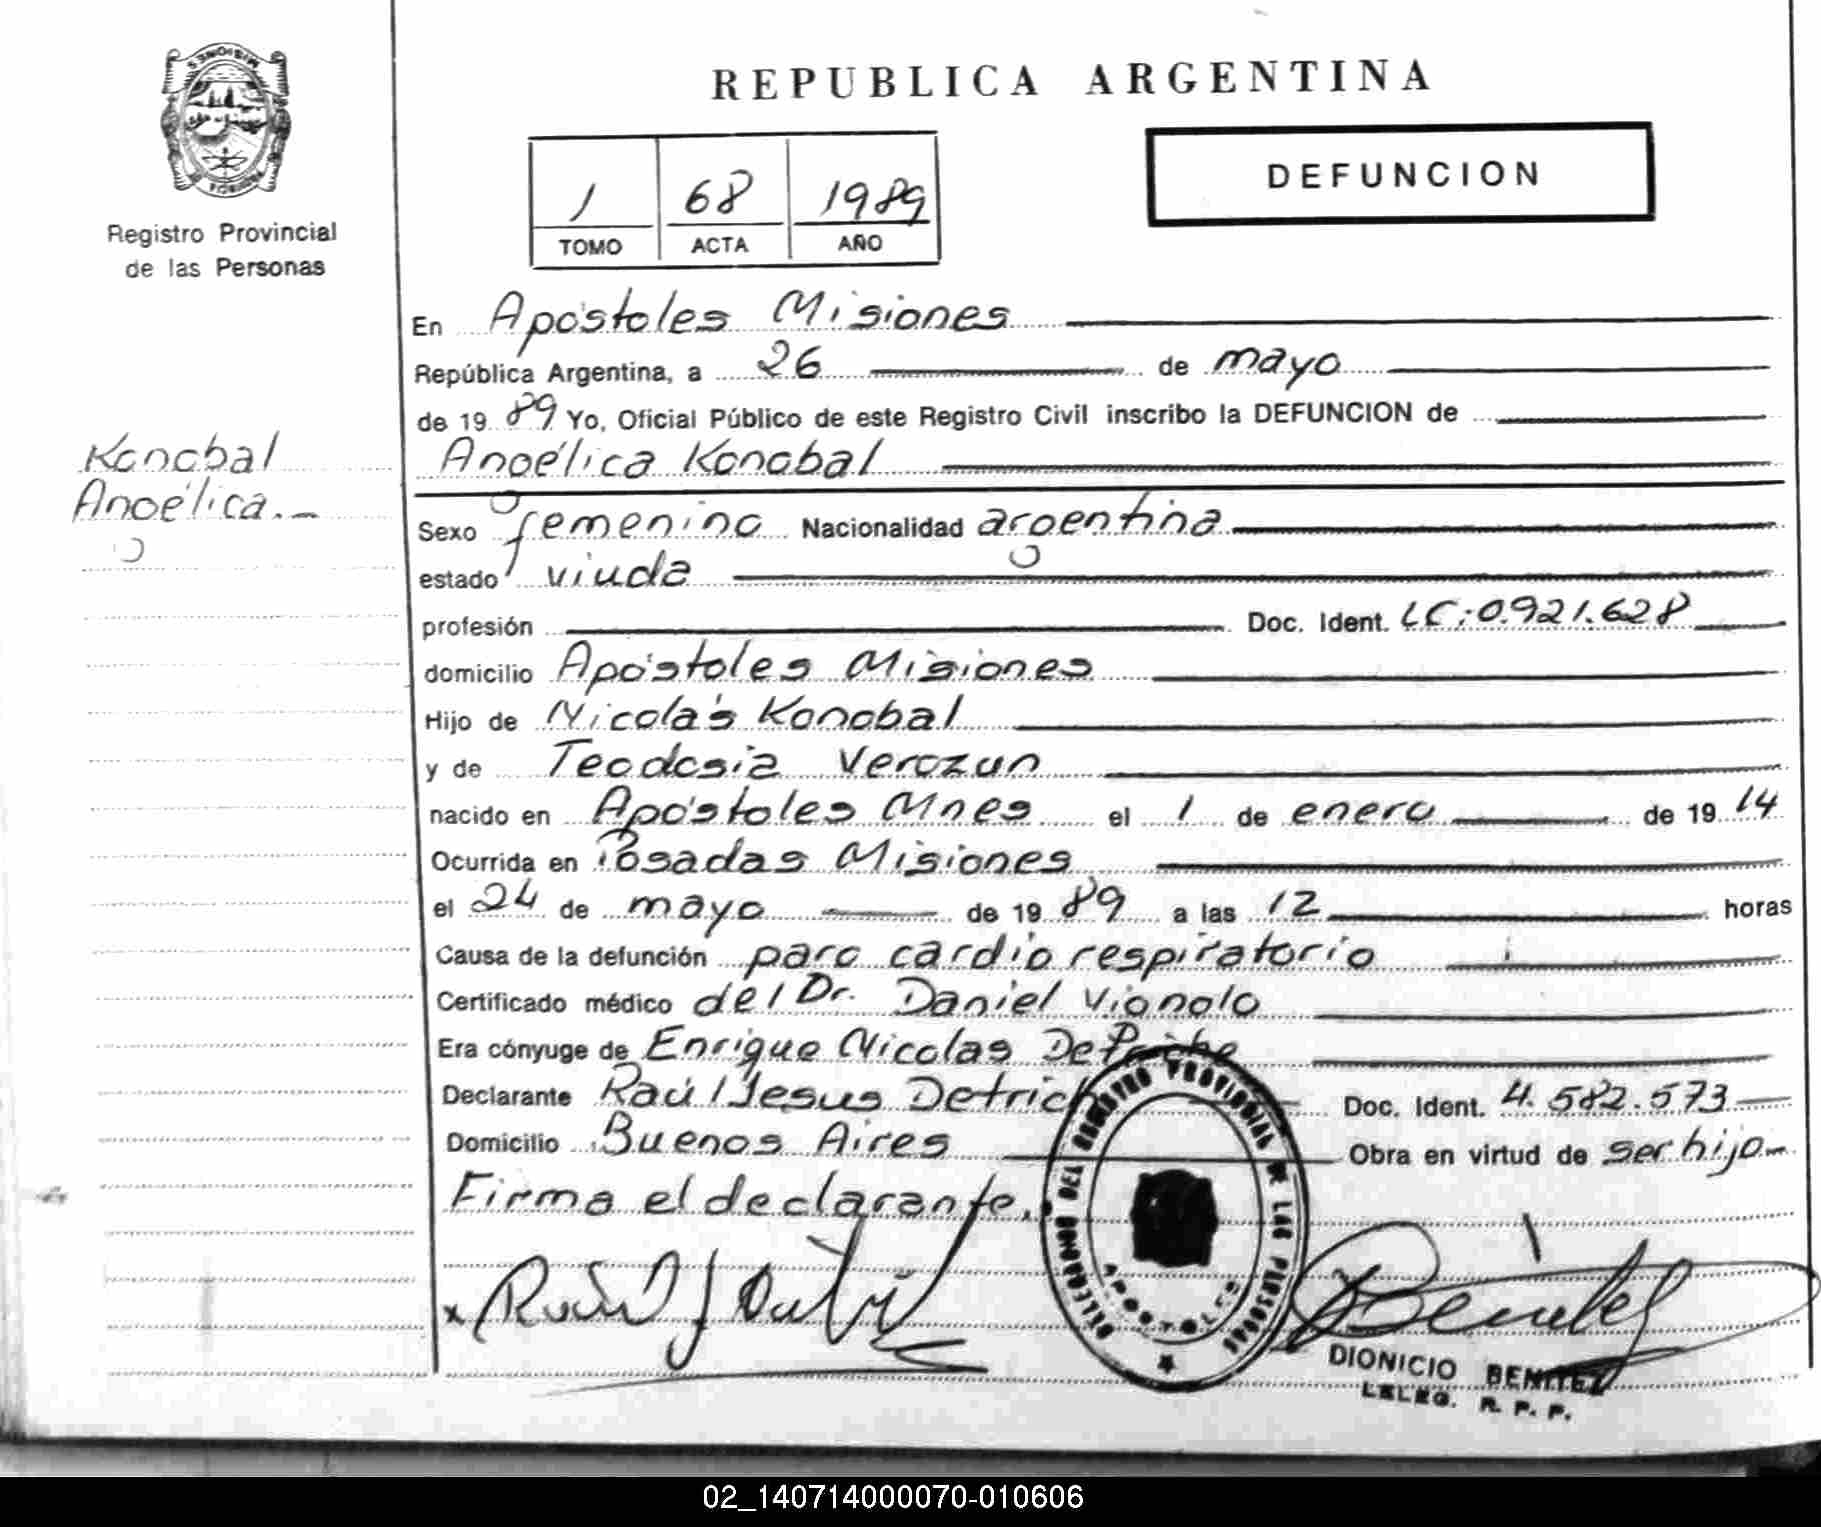 REPUBLICA ARGENTINA
MISIONES
Registro Provincial
de las Personas
1 68 1989
TOMO ACTA AÑO
DEFUNCION
En Apóstoles Misiones
República Argentina, a 26 de mayo
de 19 89 Yo, Oficial Público de este Registro Civil inscribo la DEFUNCION de
Konobal
Angélica.-
Angélica Konobal
Sexo femenino Nacionalidad argentina
estado viuda
profesión Doc. Ident. LC:0.921.628
domicilio Apóstoles Misiones
Hijo de Nicolás Konobal
y de Teodosia Verozun
nacido en Apóstoles Mnes el 1 de enero de 19 14
Ocurrida en Posadas Misiones
el 24 de mayo de 19 89 a las 12 horas
Causa de la defunción paro cardio respiratorio
Certificado médico del Dr. Daniel Vignolo
Era cónyuge de Enrique Nicolas
Declarante Raúl Jesus Detrich Doc. Ident. 4.582.573
Domicilio Buenos Aires Obra en virtud de ser hijo-
Firma el declarante.
DELEGACION DEL REGISTRO PROVINCIAL DE LAS PERSONAS
APOSTOLES
DIONICIO BENITEZ
DELEG. R. P. P.
02_140714000070-010606